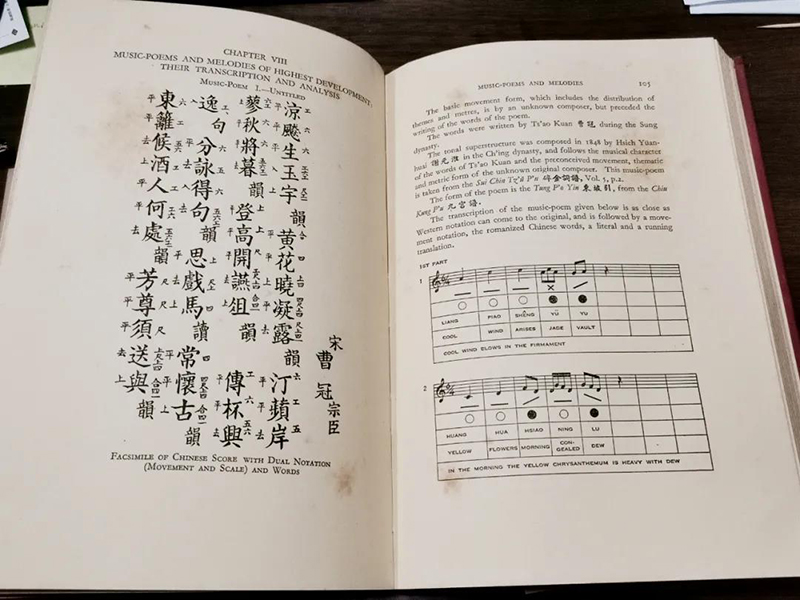 CHAPTER VIII
MUSIC-POEMS AND MELODIES OF HIGHEST DEVELOPMENT,
THEIR TRANSCRIPTION AND ANALYSIS
MUSIC-POEM I.—UNTITLED
宋 曹冠 宗臣
涼飈生玉宇韻黃花曉凝露韻汀蘋岸
蓼秋將暮韻登高開讌俎韻傳杯興
逸句分詠得句韻思戲馬讀常懷古韻
東籬候酒人何處韻芳尊須送與韻
FACSIMILE OF CHINESE SCORE WITH DUAL NOTATION
(MOVEMENT AND SCALE) AND WORDS
MUSIC-POEMS AND MELODIES 105
The basic movement form, which includes the distribution of
themes and metres, is by an unknown composer, but preceded the
writing of the words of the poem.
The words were written by Ts'ao Kuan 曹冠 during the Sung
dynasty.
The tonal superstructure was composed in 1848 by Hsieh Yüan-
huai 謝元淮 in the Ch'ing dynasty, and follows the musical character
of the words of Ts'ao Kuan and the preconceived movement, thematic
and metric form of the unknown original composer. This music-poem
is taken from the Sui Chin Tz'ŭ P'u 碎金詞譜, Vol. 5, p.2.
The form of the poem is the Tung P'o Yin 東坡引, from the Chiu
Kung P'u 九宮譜.
The transcription of the music-poem given below is as close as
Western notation can come to the original, and is followed by a move-
ment notation, the romanized Chinese words, a literal and a running
translation.
1ST PART
1
LIANG PIAO SHÊNG YÜ YU
COOL WIND ARISES JADE VAULT
COOL WIND BLOWS IN THE FIRMAMENT
2
HUANG HUA HSIAO NING LU
YELLOW FLOWERS MORNING CON- GEALED DEW
IN THE MORNING THE YELLOW CHRYSANTHEMUM IS HEAVY WITH DEW